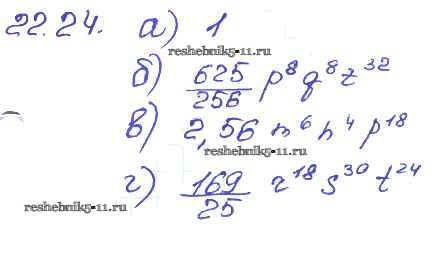 22.24. а) 1
reshebnik5-11.ru
б) 625/256 p⁸q⁸z³²
в) 2,56 m⁶n⁴p¹⁸
reshebnik5-11.ru
г) 169/25 r¹⁸s³⁰t²⁴
reshebnik5-11.ru